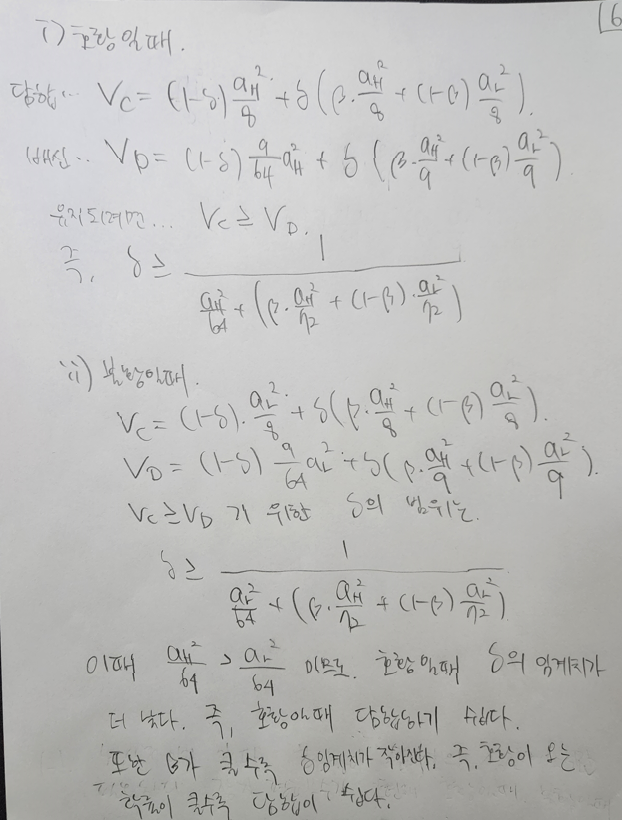 16
i) 호황일때.
담합... V_C = (1-δ) a_H²/8 + δ(β·a_H²/8 + (1-β) a_L²/8).
배신.. V_D = (1-δ) 9/64 a_H² + δ (β·a_H²/9 + (1-β) a_L²/9)
유지되려면... V_C ≥ V_D.
즉, δ ≥ 1 / (a_H²/64 + (β·a_H²/72 + (1-β)·a_L²/72))
ii) 불황일때.
V_C = (1-δ)·a_L²/8 + δ(β·a_H²/8 + (1-β) a_L²/8).
V_D = (1-δ) 9/64 a_L² + δ(β·a_H²/9 + (1-β) a_L²/9).
V_C ≥ V_D 가 위한 δ의 범위는.
δ ≥ 1 / (a_L²/64 + (β·a_H²/72 + (1-β) a_L²/72))
이때 a_H²/64 > a_L²/64 이므로. 호황일때 δ의 임계치가
더 낮다. 즉, 호황일때 담합하기 쉽다.
또한 β가 클수록 δ임계치가 작아진다. 즉, 호황이 오는
확률이 클수록 담합이 쉽다.